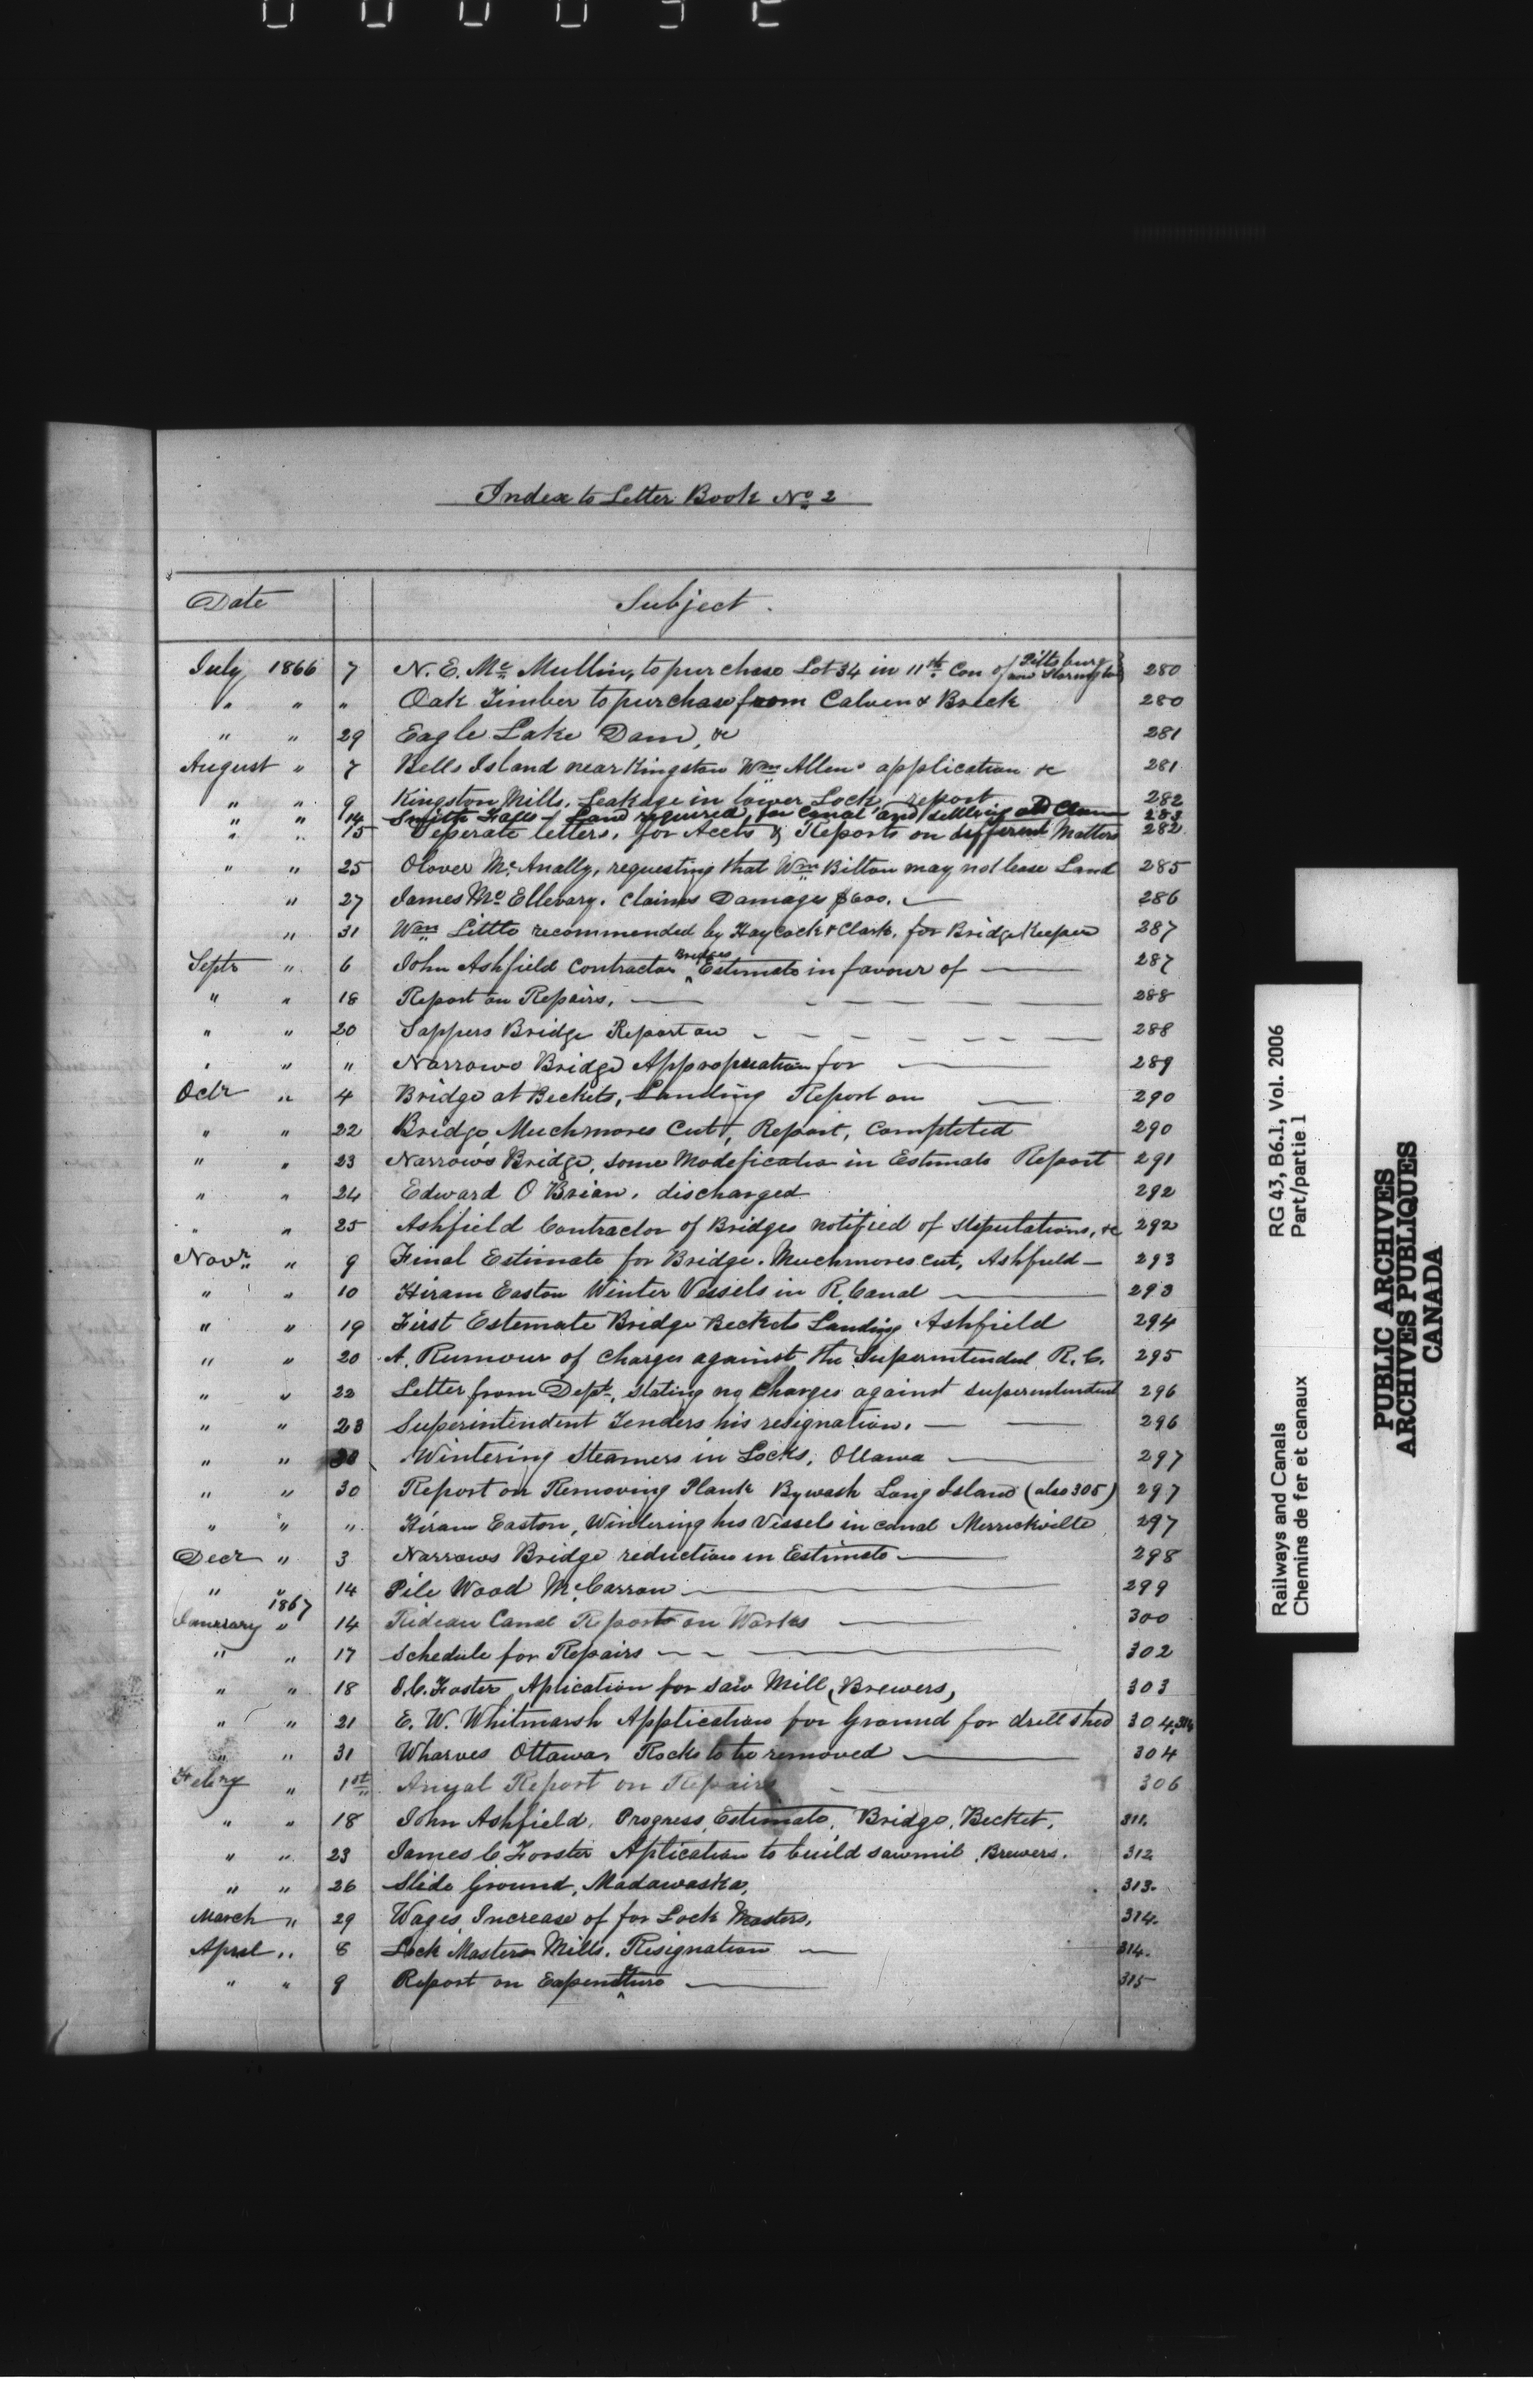 Index to Letter Book No 2
Date Subject.
July 1866 7 N. E. Mc Mullin, to purchase Lot 34 in 11th Con of Pittsburg and Storington 280
" " " Oak Timber to purchase from Calvin & Breck 280
" " 29 Eagle Lake Dam, &c 281
August " 7 Bells Island near Kingston Wm Allens application &c 281
" " 9 Kingston Mills, Leakage in lower Lock, report 282
" " 14 Smiths Falls - Land required for Canal and settling old Claim 283
" " 15 Seperate letters, for Accts & Reports on different Matters 282
" " 25 Olover McAnally, requesting that Wm Bilton may not lease Land 285
" 27 James Mc Ellevary. Claims Damages $600. 286
" 31 Wm Little recommended by Haycock & Clark, for Bridge Keeper 287
Septr " 6 John Ashfield Contractor Bridges Estimate in favour of 287
" " 18 Report on Repairs, 288
" " 20 Sappers Bridge Report on 288
" " " Narrows Bridge Appropriation for 289
Octr " 4 Bridge at Beckets, Landing Report on 290
" " 22 Bridge, Muchmores Cut, Report, Completed 290
" " 23 Narrows Bridge, some Modeficatio in Estimate Report 291
" " 24 Edward O Brian, discharged 292
" " 25 Ashfield Contractor of Bridges notified of stipulations, &c 292
Novr " 9 Final Estimate for Bridge. Muchmores cut, Ashfield 293
" " 10 Hiram Easton Winter Vessels in R. Canal 293
" " 19 First Estemate Bridge Beckets Landing Ashfield 294
" " 20 A Rumour of charges against the Superintendent R. C. 295
" " 22 Letter from Dept, stating no Charges against superintendent 296
" " 23 Superintendent Tenders his resignation. 296
" " Wintering Steamers in Locks, Ottawa 297
" " 30 Report on Removing Plank Bywash Long Island (also 305) 297
" " " Hiram Easton, Wintering his Vessels in canal Merrickville 297
Decr " 3 Narrows Bridge reduction in Estimate 298
" " 14 Pile Wood McCarron 299
1867
January " 14 Rideau Canal Report on Works 300
" " 17 Schedule for Repairs 302
" " 18 J. C. Foster Aplication for saw Mill, Brewers, 303
" " 21 E. W. Whitmarsh Application for Ground for drill shed 304, 316
" " 31 Wharves Ottawa, Rocks to be removed 304
Febry " 1st Anual Report on Repairs 306
" " 18 John Ashfield, Progress, Estimate, Bridge, Becket, 311.
" " 23 James C Forster Aplication to build sawmil Brewers. 312
" " 26 Slide Ground, Madawaska, 313.
March " 29 Wages, Increase of for Lock Masters, 314.
April " 8 Lock Master Mills, Resignation 314.
" " 9 Report on Expenditure 315
Railways and Canals RG 43, B6.1, Vol. 2006
Chemins de fer et canaux Part/partie 1
PUBLIC ARCHIVES
ARCHIVES PUBLIQUES
CANADA